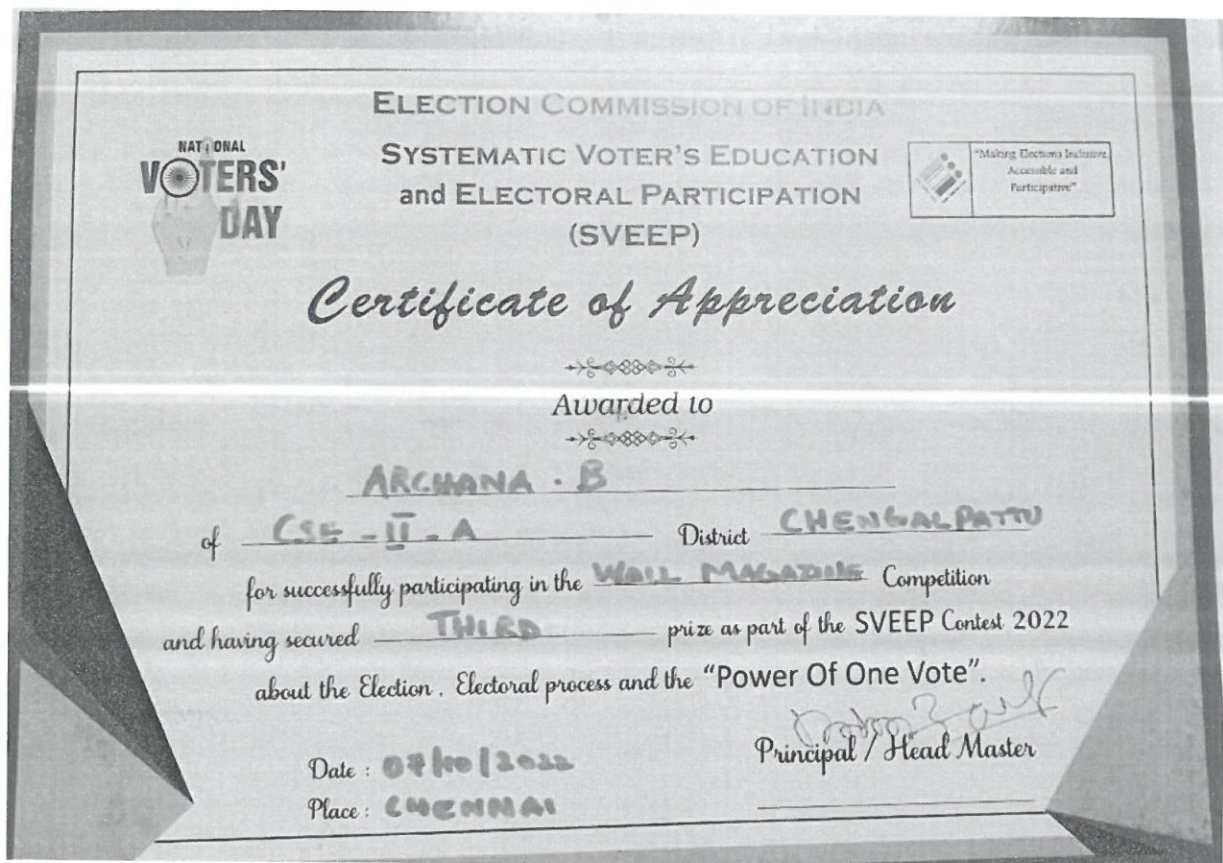 ELECTION COMMISSION OF INDIA
NATIONAL
VOTERS'
DAY
SYSTEMATIC VOTER'S EDUCATION
and ELECTORAL PARTICIPATION
(SVEEP)
"Making Elections Inclusive,
Accessible and
Participative"
Certificate of Appreciation
Awarded to
ARCHANA . B
of CSE - II - A District CHENGALPATTU
for successfully participating in the WALL MAGAZINE Competition
and having secured THIRD prize as part of the SVEEP Contest 2022
about the Election . Electoral process and the "Power Of One Vote".
Principal / Head Master
Date : 07/10/2022
Place : CHENNAI